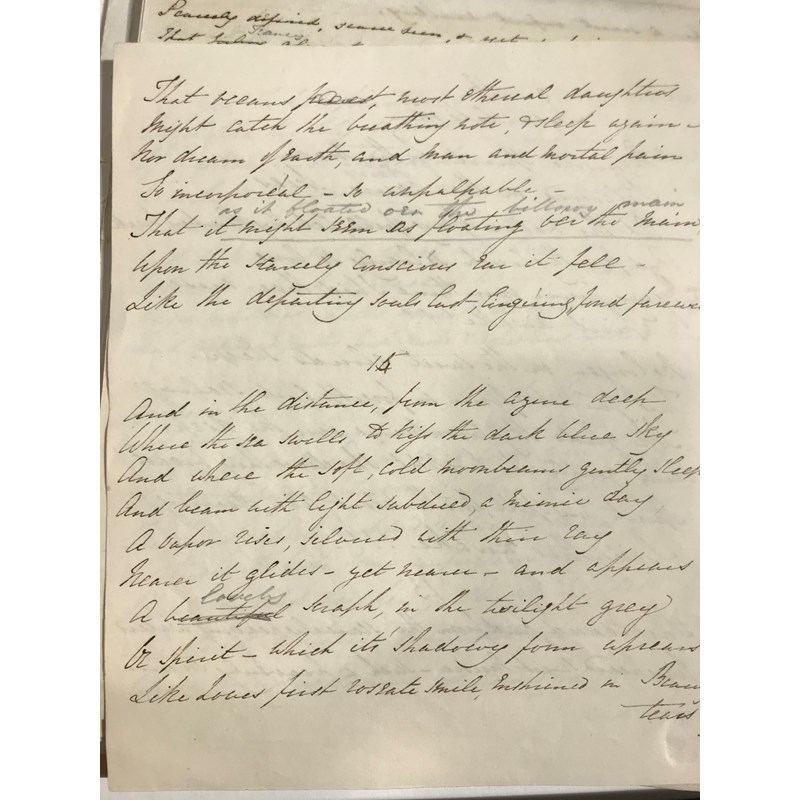 Scarcely defined, scarce seen, & yet
That
That oceans most ethereal daughters
Might catch the breathing note, & sleep again –
Nor dream of Earth, and Man and mortal pain
So incorporeal – so unpalpable –
as it floated oer the billowy main
That it might seem as floating oer the Main,
Upon the scarcely conscious Ear it fell –
Like the departing souls last, lingering, fond farewe
15
And in the distance, from the azure deep
Where the sea swells to kiss the dark blue sky
And where the soft, cold moonbeams gently sleep
And beam with light subdued, a mimic day,
A vapor rises, silvered with their ray
Nearer it glides – yet nearer – and appears
lovely
A beautiful seraph, in the twilight grey
Or spirit – which its' shadowy form uprears
Like Loves first roseate smile, enshrined in Beau
tears